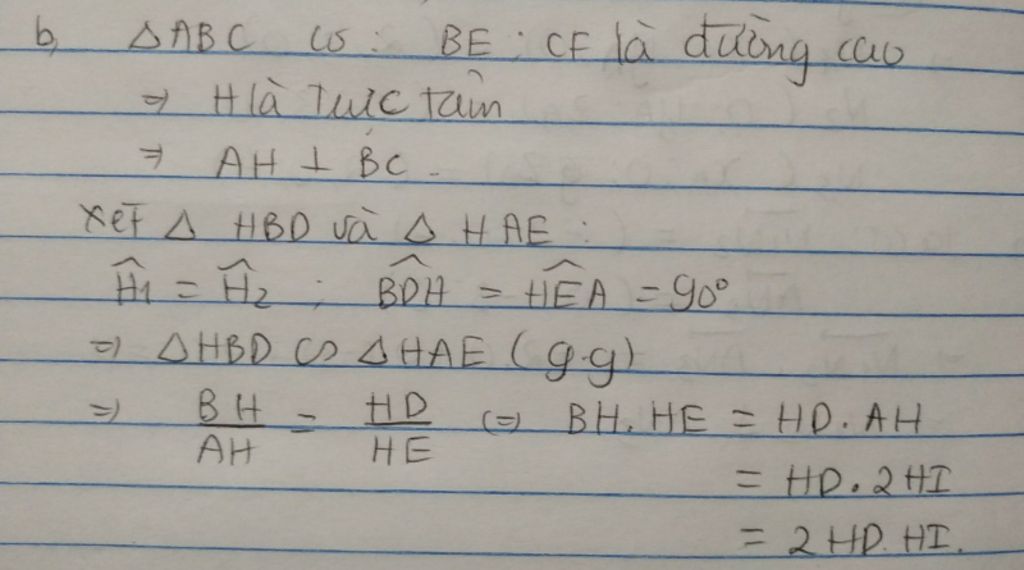 b, △ABC có : BE ; CF là đường cao
⇒ H là Trực tâm
⇒ AH ⊥ BC.
Xét △ HBD và △ HAE :
Ĥ1 = Ĥ2 ; BDĤ = HEÂ = 90°
⇒ △HBD ∽ △HAE (g.g)
⇒ BH/AH = HD/HE (⇒) BH.HE = HD.AH
= HD.2HI
= 2HD.HI.